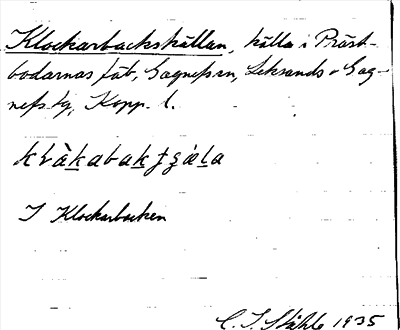 Klockarbackskällan, källa i Präst-
bodarnas fäb, Gagnefs sn, Leksands o Gag-
nefs tg, Kopp. l.
I Klockarbacken
C. I. Ståhle 1935